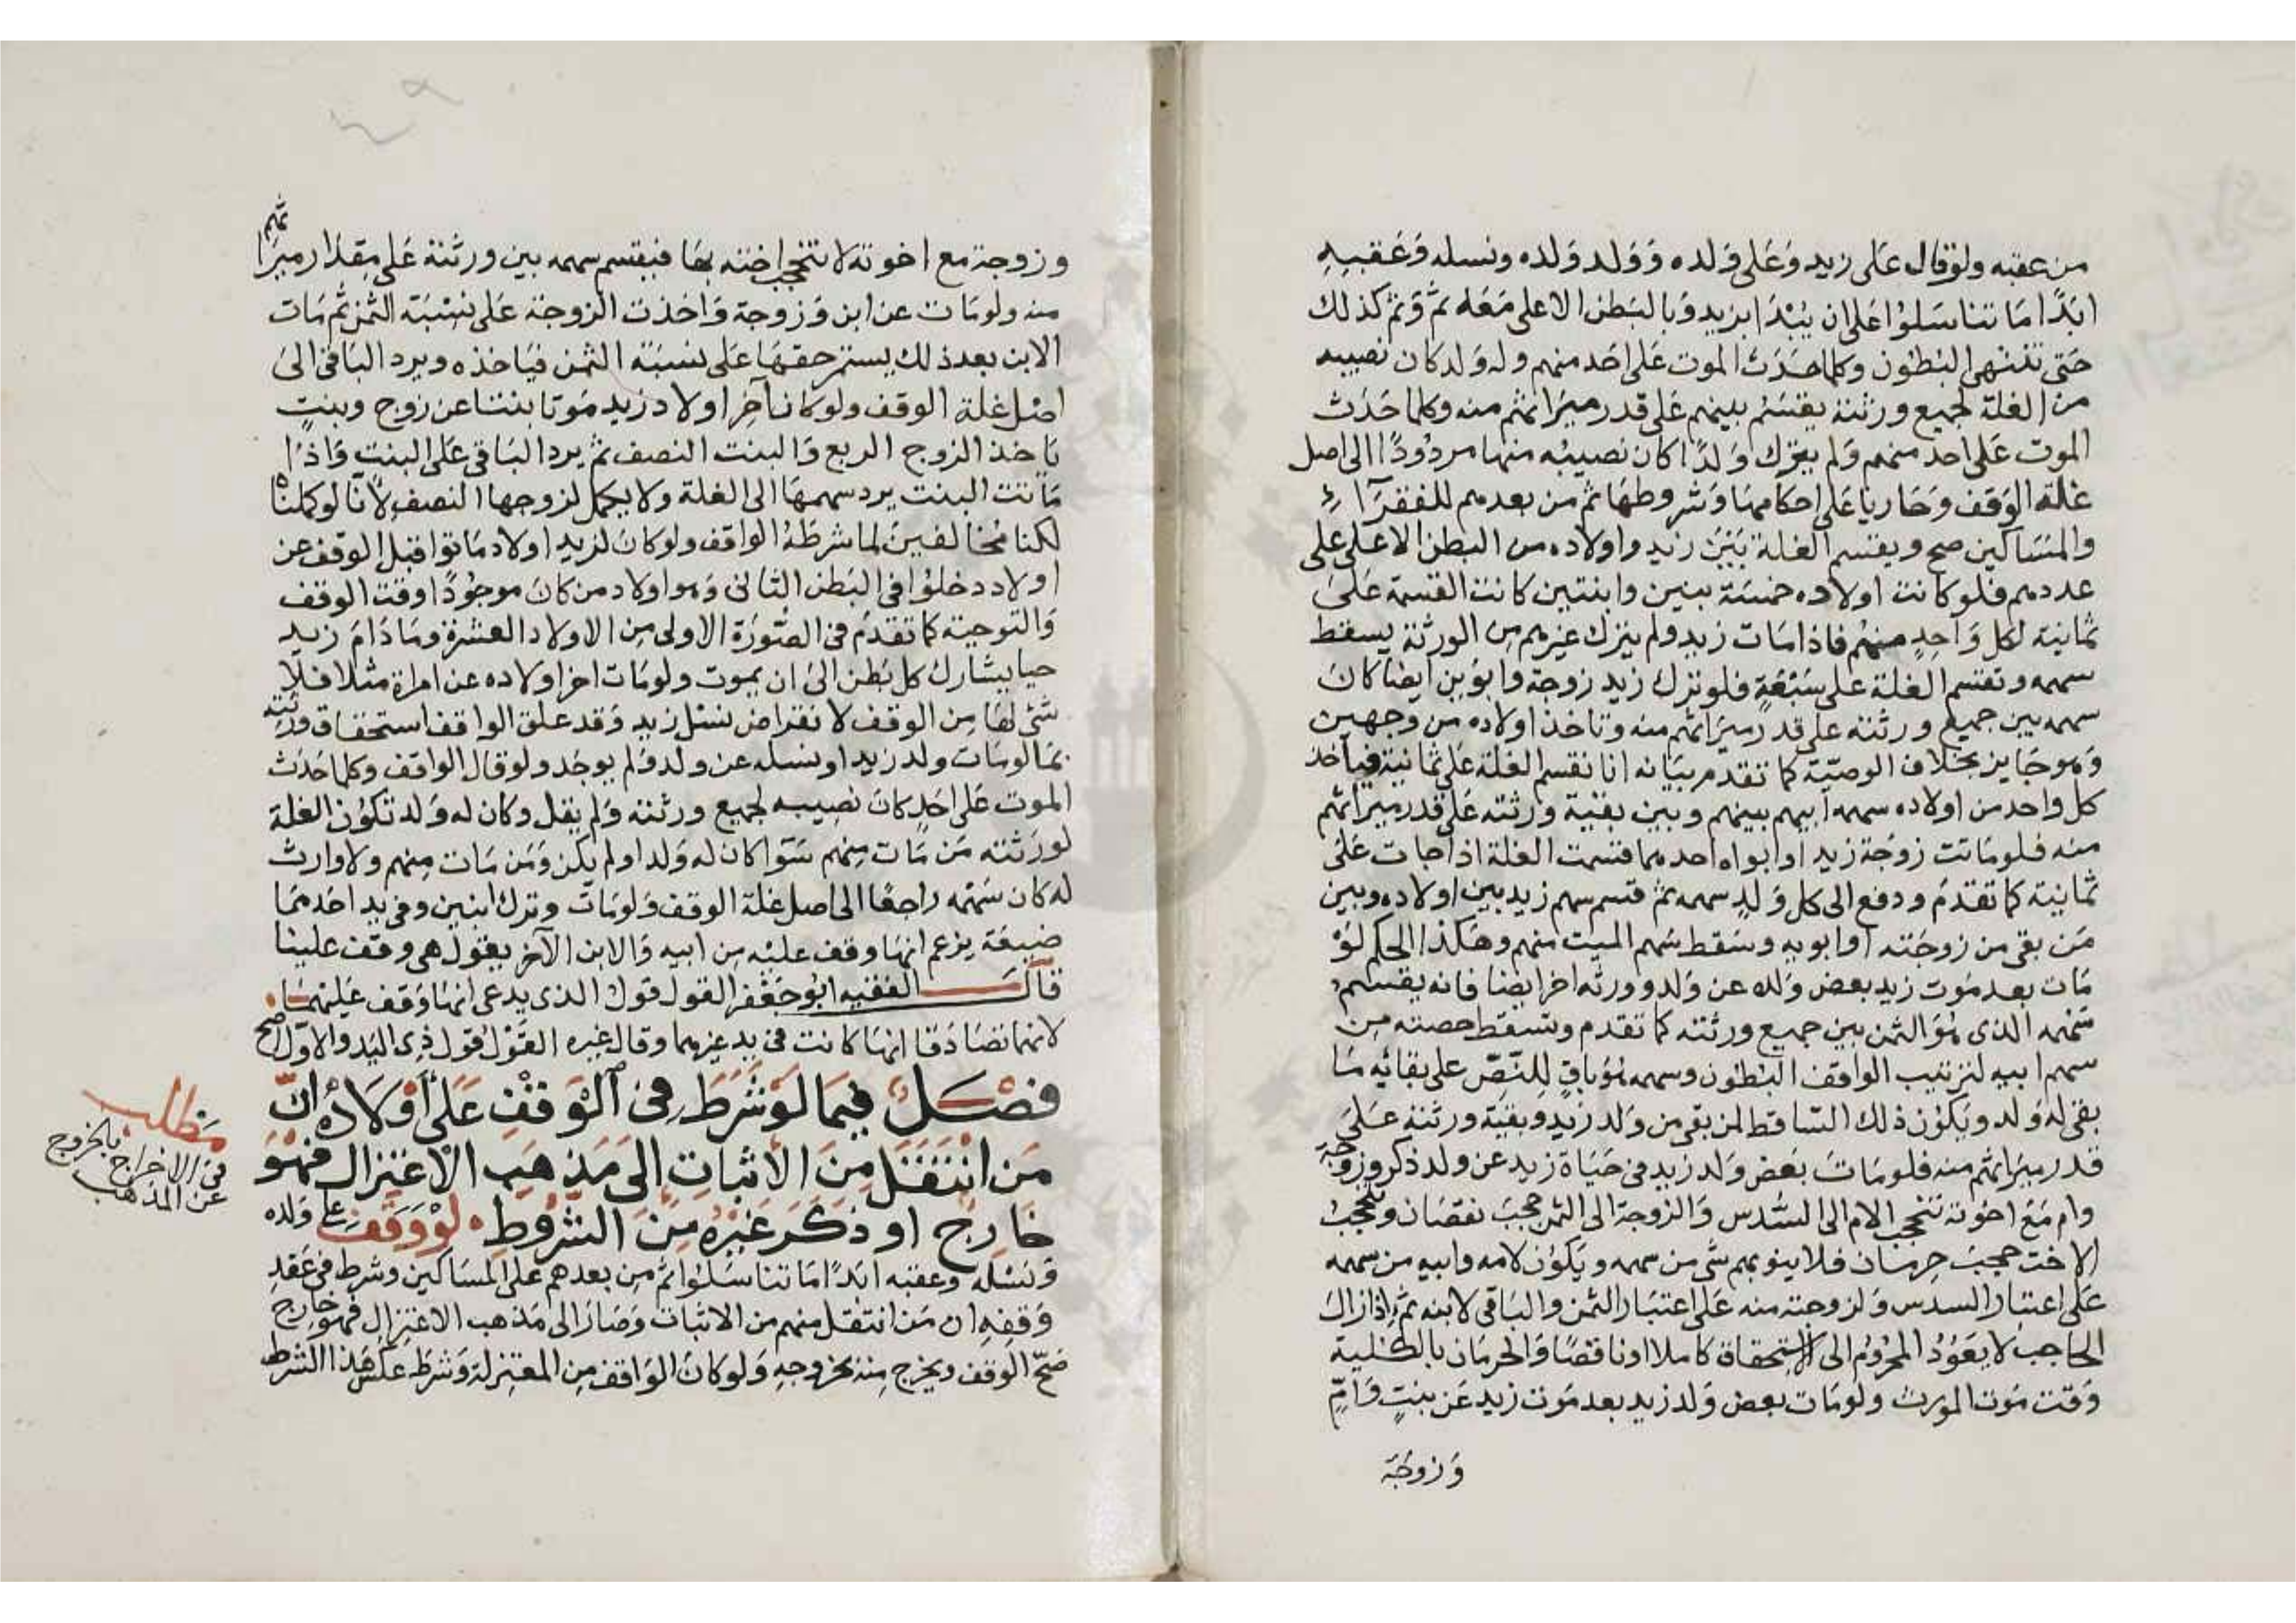 من عقبه ولو قال على زيد وعلى ولده وولد ولده ونسله وعقبه
ابدًا ما تناسلوا على ان يُبْدَا بزيد وبالبطن الاعلى معه ثم وثم كذلك
حتى تنتهى البطون وكلما حدث الموت على احد منهم وله ولد كان نصيبه
من الغلة لجميع ورثته يقسم بينهم على قدر ميراثهم منه وكلما حدث
الموت على احد منهم ولم يترك ولدًا كان نصيبه منها مردودًا الى اصل
غلة الوقف وجاريا على احكامها وشروطها ثم من بعدهم للفقرآء
والمساكين صح ويقسم الغلة بين زيد واولاده من البطن الاعلى على
عددهم فلو كانت اولاده خمسة بنين وابنتين كانت القسمة على
ثمانية لكل واحد منهم فاذا مات زيد ولم يترك غيرهم من الورثة يسقط
سهمه وتقسم الغلة على سبعة فلو ترك زيد زوجة وابوين ايضا كان
سهمه بين جميع ورثته على قدر ميراثهم منه وتاخذ اولاده من وجهين
وهو جايز بخلاف الوصية كما تقدم بيانه انا نقسم الغلة على ثمانية فياخذ
كل واحد من اولاده سهمه ابيهم بينهم وبين بقية ورثته على قدر ميراثهم
منه فلو ماتت زوجة زيد او ابواه احدهما قسمت الغلة اذا جات على
ثمانية كما تقدم ودفع الى كل ولد سهمه ثم قسم سهم زيد بين اولاده وبين
من بقى من زوجته او ابويه وسقط سهم الميت منهم وهكذا الحكم لو
مات بعد موت زيد بعض ولده عن ولد وورثه اخر ايضا فانه يقسم
سهمه الذى هو الثمن بين جميع ورثته كما تقدم وتسقط حصته من
سهم ابيه لترتيب الواقف البطون وسهمه هو باق للنص على بقائه ما
بقى له ولد ويكون ذلك الساقط لمن بقى من ولد زيد وبقية ورثته على
قدر ميراثهم منه فلو مات بعض ولد زيد فى حياة زيد عن ولد ذكر وزوجة
وام مع اخوته تنحجب الام الى السدس والزوجة الى الثمن حجب نقصان وتنحجب
الاخت حجب حرمان فلا ينوبهم شى من سهمه ويكون لامه وابيه من سهمه
على اعتبار السدس ولزوجته منه على اعتبار الثمن والباقى لابنه ثم اذا زال
الحاجب لا يعود المحروم الى استحقاقه كاملا او ناقصا والحرمان بالكلية
وقت موت المورث ولو مات بعض ولد زيد بعد موت زيد عن بنتٍ وامٍّ
وزوجة
وزوجة مع اخوته لا تنحجب اخته بها فيقسم سهمه بين ورثته على مقدار ميراثهم
منه ولو مات عن ابن وزوجة واخذت الزوجة على نسبة الثمن ثم مات
الابن بعد ذلك يستمر حقها على نسبة الثمن فياخذه ويرد الباقى الى
اصل غلة الوقف ولو كان آخر اولاد زيد موتا بنتا عن زوج وبنتٍ
ياخذ الزوج الربع والبنت النصف ثم يرد الباقى على البنت واذا
ماتت البنت يرد سهمها الى الغلة ولا يكمل لزوجها النصف لانا لو كملناه
لكنا مخالفين لما شرطه الواقف ولو كان لزيد اولاد ماتوا قبل الوقف عن
اولاد دخلوا فى البطن الثانى وهو اولاد من كان موجودًا وقت الوقف
والتوجيه كما تقدم فى الصورة الاولى من الاولاد العشرة وما دام زيد
حيا يشارك كل بطن الى ان يموت ولو مات اخر اولاده عن امراة مثلا فلا
شئ لها من الوقف لانقراض نسل زيد وقد علق الواقف استحقاق ورثته
بما لو مات ولد زيد او نسله عن ولد ولم يوجد ولو قال الواقف وكلما حدث
الموت على احد كان نصيبه لجميع ورثته ولم يقل وكان له ولد تكون الغلة
لورثته من مات منهم سوا كان له ولد او لم يكن ومن مات منهم ولا وارث
له كان سهمه راجعا الى اصل غلة الوقف ولو مات وترك ابنين وفى يد احدهما
ضيعة يزعم انها وقف عليه من ابيه والابن الآخر يقول هى وقف علينا
قال الفقيه ابو جعفر القول قول الذى يدعى انها وقف عليهما
لانهما تصادقا انها كانت فى يد غيرهما وقال غيره القول قول ذى اليد والاول اصح
فصل فيما لو شرط فى الوقف على اولاده ان
من انتقل من الاثبات الى مذهب الاعتزال فهو
خارج او ذكر غيره من الشروط لو وقف على ولده
ونسله وعقبه ابدًا ما تناسلوا ثم من بعدهم على المساكين وشرط فى عقد
وقفه ان من انتقل منهم من الاثبات وصار الى مذهب الاعتزال فهو خارج
صح الوقف ويخرج منه بخروجه ولو كان الواقف من المعتزلة وشرط عكس هذا الشرط
مطلب
فى الاخراج بالخروج
عن المذهب